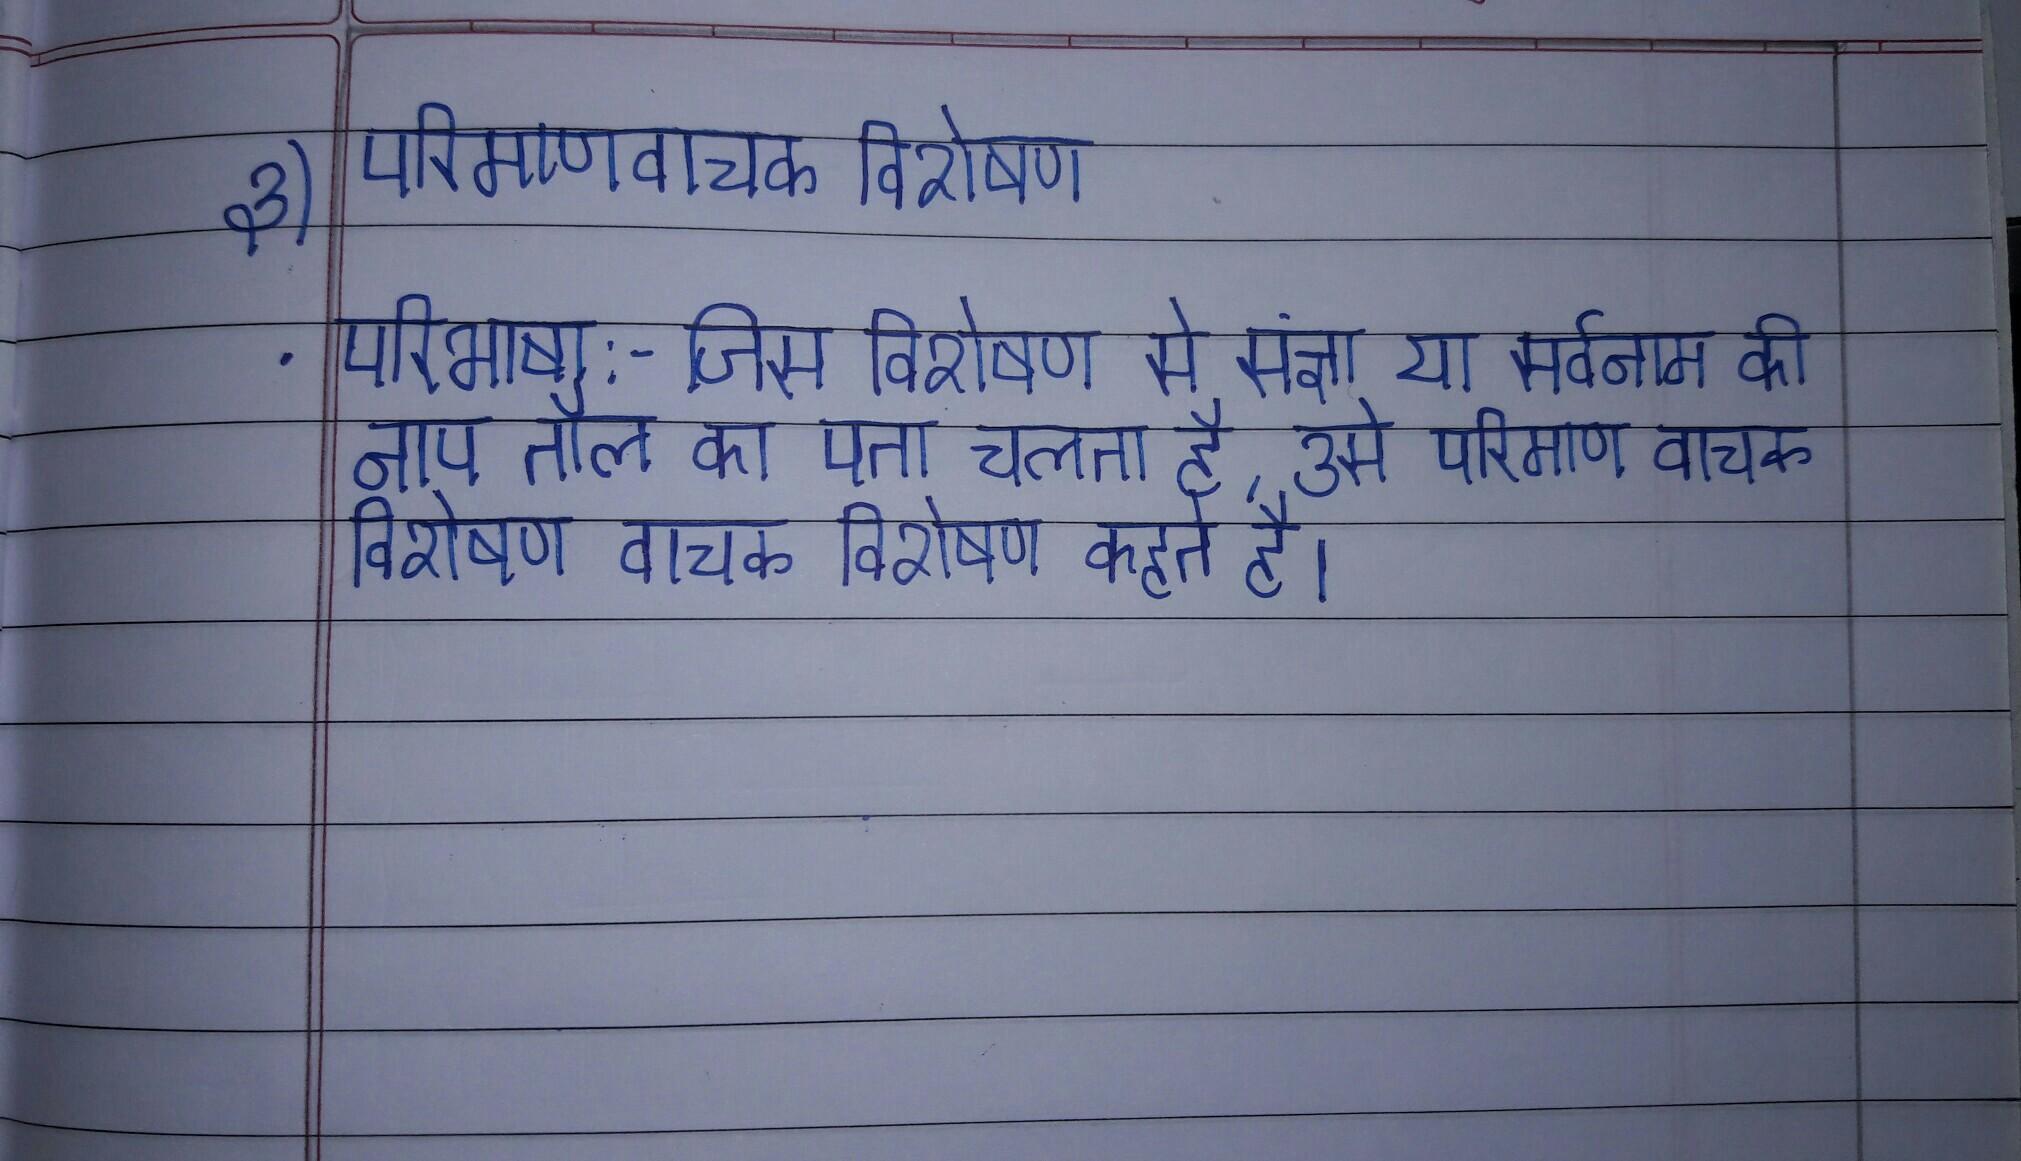 ३) परिमाणवाचक विशेषण
· परिभाषा:- जिस विशेषण से संज्ञा या सर्वनाम की
नाप तौल का पता चलता है, उसे परिमाण वाचक
विशेषण वाचक विशेषण कहते है।